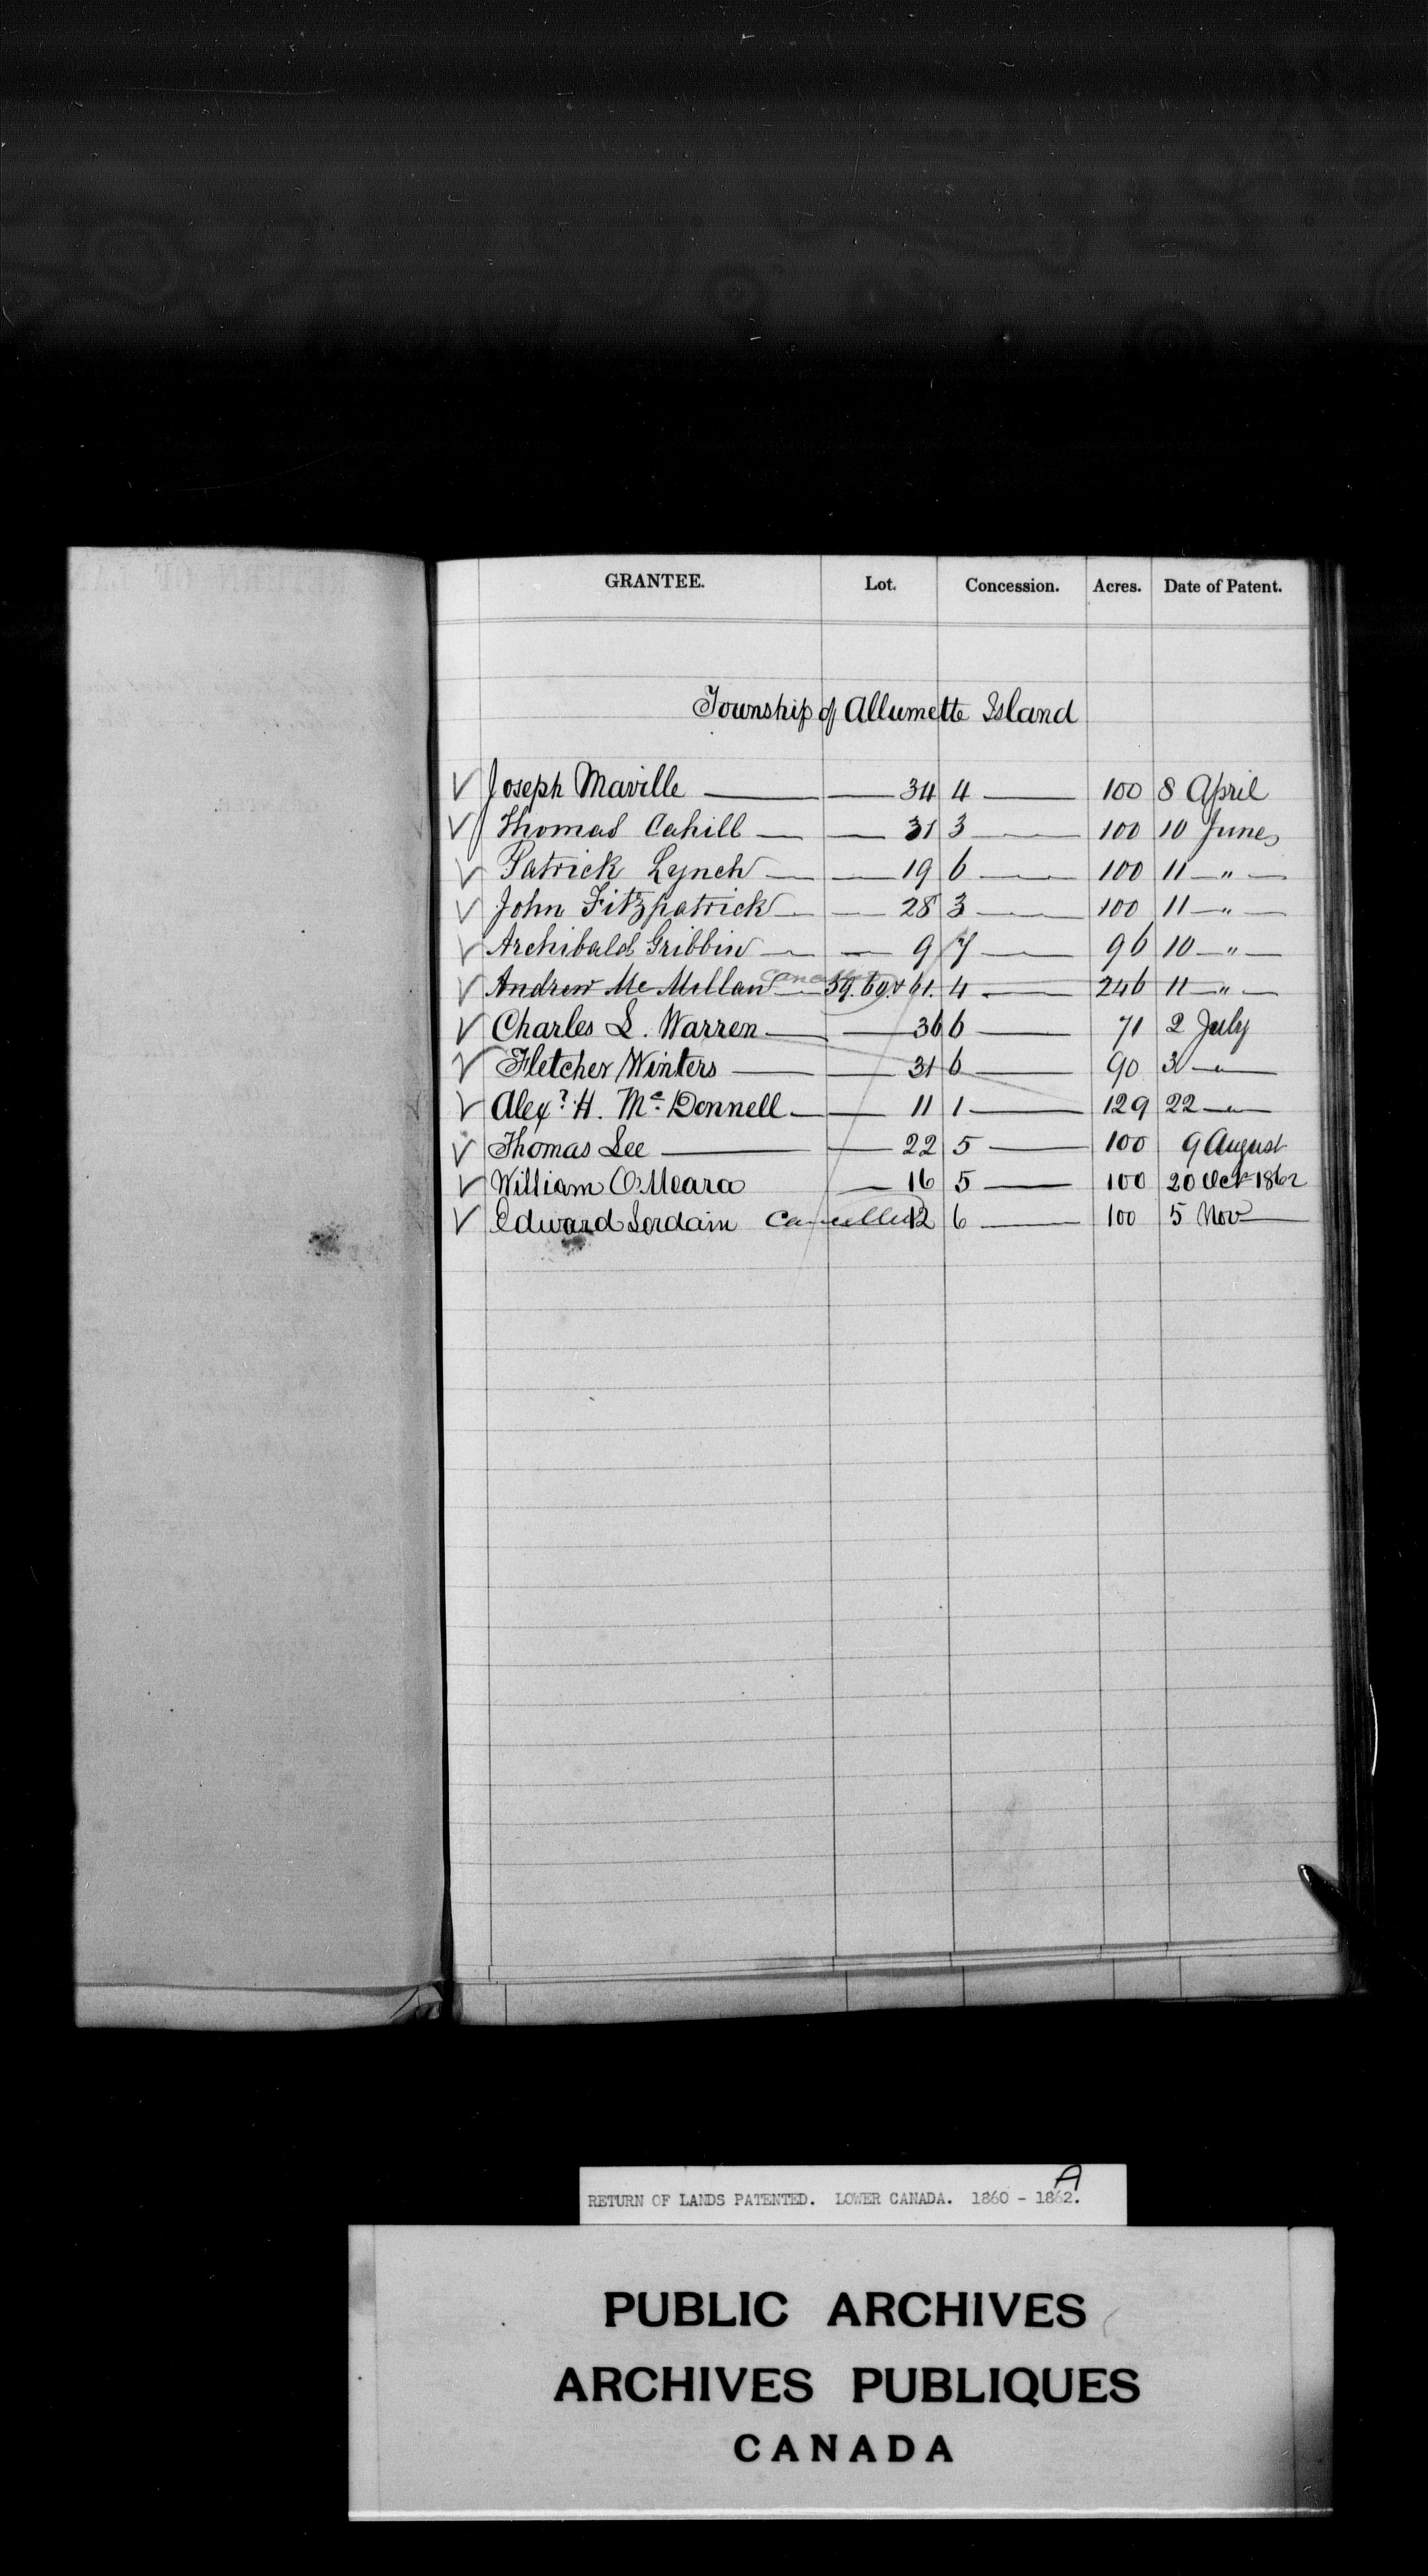 GRANTEE. Lot. Concession. Acres. Date of Patent.
Township of Allumette Island
V Joseph Maville 34 4 100 8 April
V Thomas Cahill 31 3 100 10 June
V Patrick Lynch 19 6 100 11 "
V John Fitzpatrick 28 3 100 11 "
V Archibald Gribbin 9 7 96 10 "
V Andrew Mc Millan Cancelled 59. 60. & 61. 4 246 11 "
V Charles L. Warren 36 6 71 2 July
V Fletcher Winters 31 6 90 3 "
V Alexr. H. Mc Donnell 11 1 129 22 "
V Thomas Lee 22 5 100 9 August
V William O Meara 16 5 100 20 Oct 1862
V Edward Jordain Cancelled 12 6 100 5 Nov
A
RETURN OF LANDS PATENTED. LOWER CANADA. 1860 - 1862.
PUBLIC ARCHIVES
ARCHIVES PUBLIQUES
CANADA